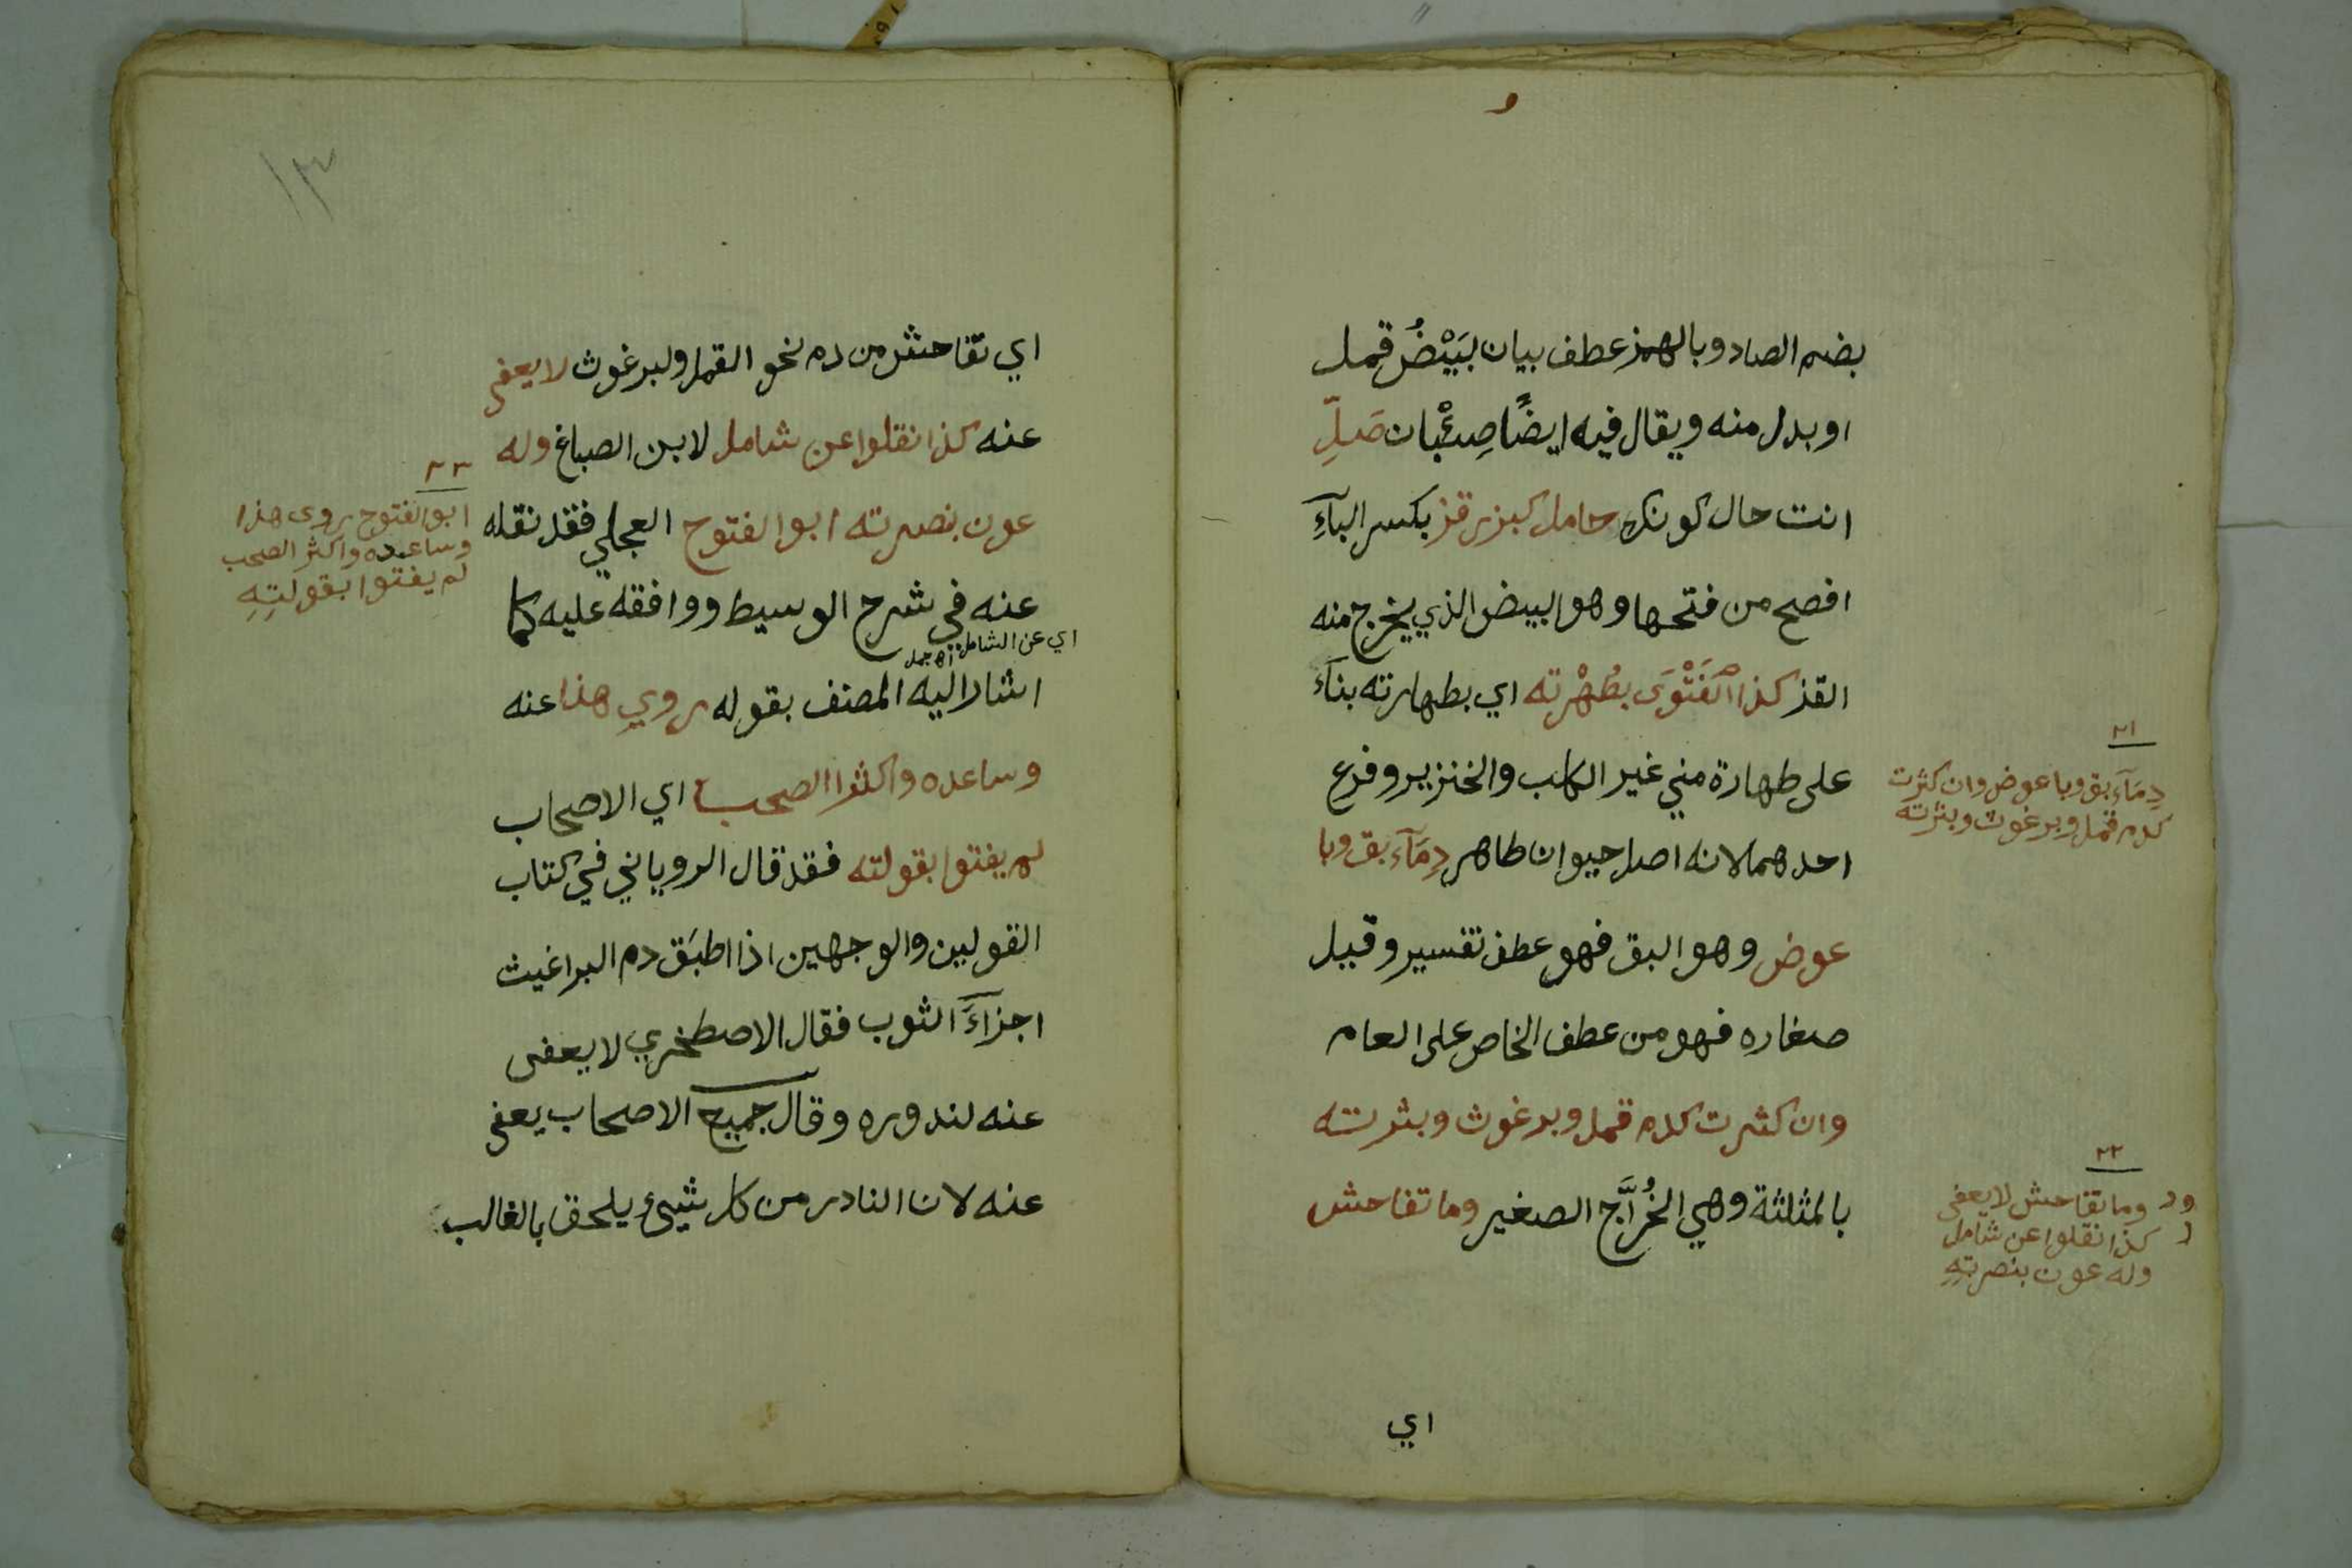 بضم الصاد وبالهمز عطف بيان لبَيْضُ قمل
او بدل منه ويقال فيه ايضًا صِئْبان صَلِّ
انت حال كونك حامل كبزر قز بكسر البآءِ
افصح من فتحها وهو البيض الذي يخرج منه
القز كذا الفَتْوَى بطُهْرته اي بطهارته بناءً
على طهارة مني غير الكلب والخنزير وفرع
احدهما لانه اصل حيوان طاهر دِمَآء بق وبا
عوض وهو البق فهو عطف تفسير وقيل
صغاره فهو من عطف الخاص على العام
وان كثرت كدم قمل وبرغوث وبثرته
بالمثلثة وهي الخُرَّاج الصغير وما تفاحش
اي
٢١
دِمَآء بق وبا عوض وان كثرت
كدم قمل وبرغوث وبثرته
٢٢
وما تفاحش لا يعفى
كذا نقلوا عن شامل
وله عون بنصرتِهِ
١٣
اي تفاحش من دم نحو القمل ولبرغوث لا يعفى
عنه كذا نقلوا عن شامل لابن الصباغ وله
عون بنصرته ابو الفتوح العجلي فقد نقله
عنه في شرح الوسيط ووافقه عليه كما
اي عن الشامل
اشار اليه المصنف بقوله روي هذا عنه
وساعده واكثر الصحب اي الاصحاب
لم يفتوا بقولته فقد قال الروياني في كتاب
القولين والوجهين اذا اطبَق دم البراغيث
اجزاءَ الثوب فقال الاصطخري لا يعفى
عنه لندوره وقال جميع الاصحاب يعفى
عنه لان النادر من كل شيئ يلحق بالغالب
٢٣
ابو الفتوح روى هذا
وساعده واكثر الصحب
لم يفتوا بقولتِهِ